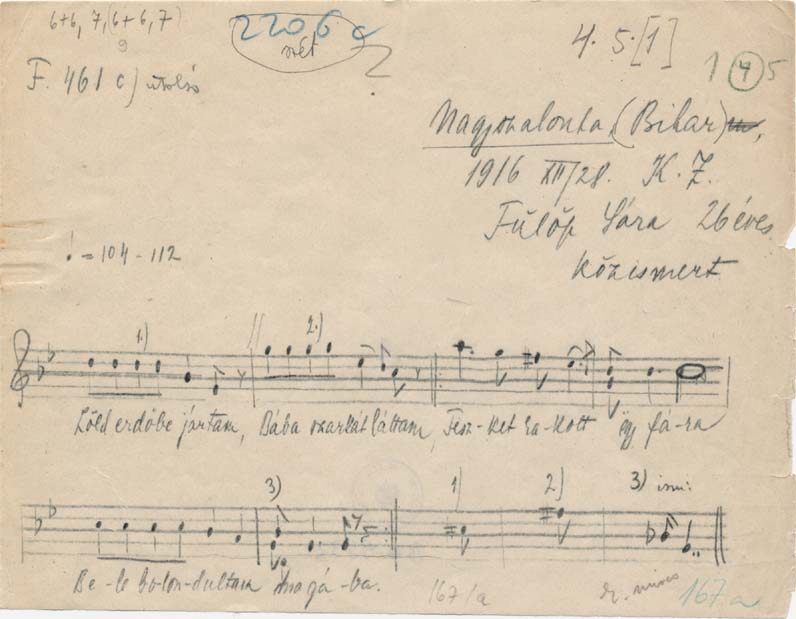 6+6, 7, (6+6, 7)
9
2206 c
4. 5. [1]
1 4 5
F. 461 c) utolsó
Nagyszalonta (Bihar)
1916 XII/28. K. Z.
Fülöp Sára 26 éves
közismert
= 104 - 112
1.) 2.)
Zöld erdőbe jártam, Bába szarkát láttam, Fész-ket ra-kott egy fá-ra
3) 1) 2) 3) ism:
Be-le bo-lon-dultam magá-ba.
167/a
nincs
167 a